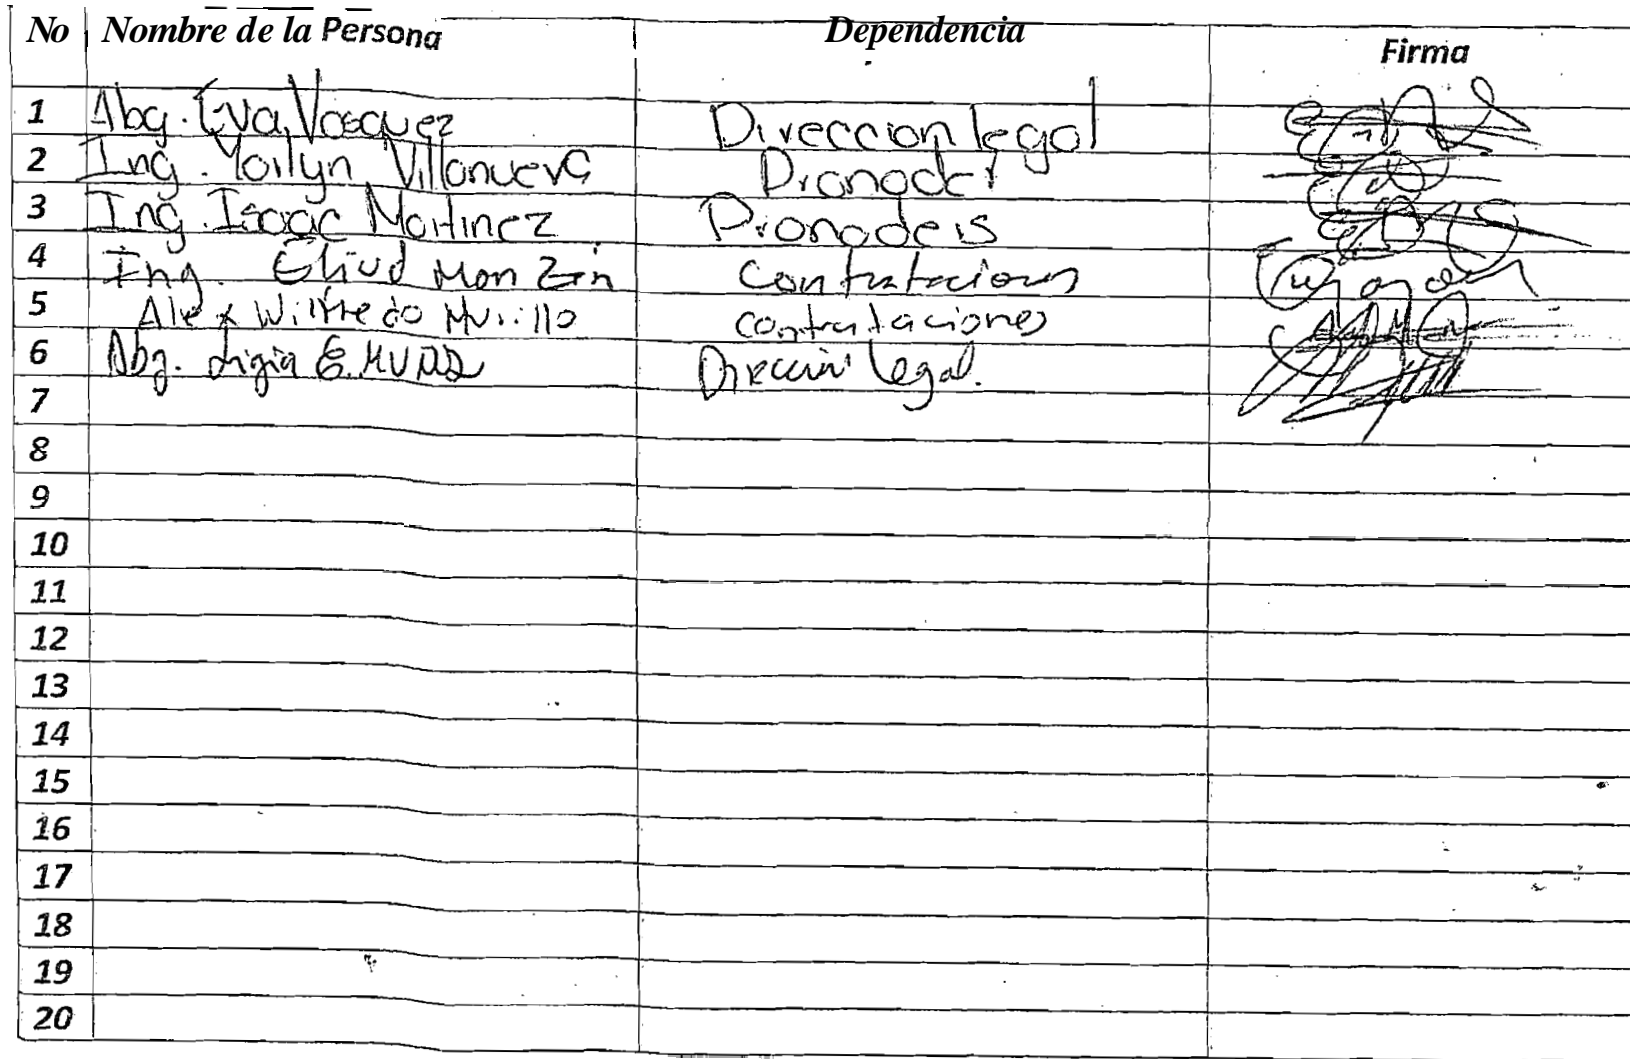 No Nombre de la Persona Dependencia Firma
1 Abg. Eva Vasquez Direccion legal
2 Ing. Yorlyn Villanueva
3 Ing. Isaac Martinez Pronadeis
4 Ing. Eliud Monzon Contrataciones
5 Alex Wilfredo Murillo contrataciones
6 Abg. Ligia E. Dirección Legal.
7
8
9
10
11
12
13
14
15
16
17
18
19
20